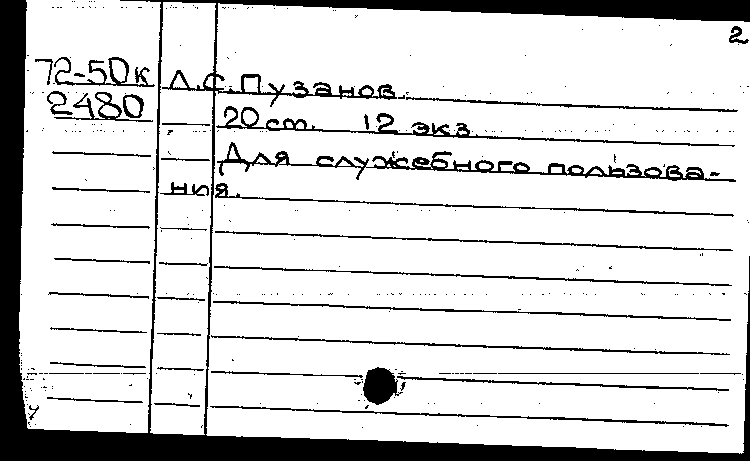 2
72-50к Л.С. Пузанов.
2480 20 ст. 12 экз
Для служебного пользова-
ния.